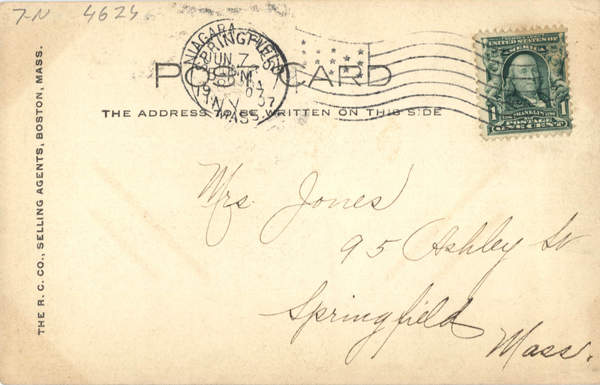 7-N 4624
POST CARD
THE ADDRESS TO BE WRITTEN ON THIS SIDE
NIAGARA
SPRINGFIELD
JUN 7
1907
N.Y.
MASS.
UNITED STATES OF AMERICA
FRANKLIN
1 POSTAGE 1
ONE CENT
Mrs. Jones
95 Ashley St
Springfield
Mass.
THE R. C. CO., SELLING AGENTS, BOSTON, MASS.